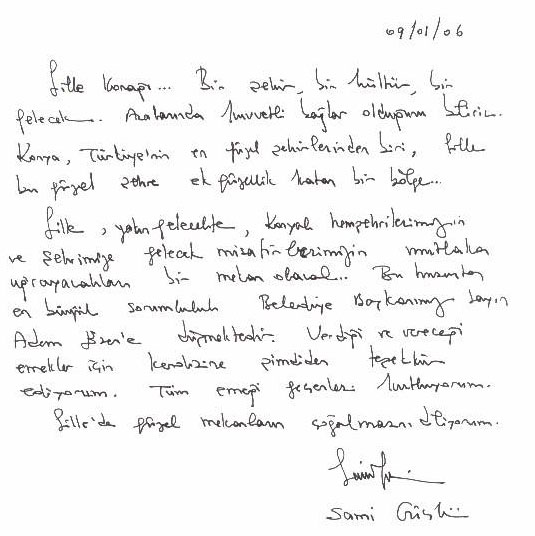 09/01/06
Sille Konağı... Bir şehir, bir kültür, bir
gelecek.. Aralarında kuvvetli bağlar olduğunu bilirim.
Konya, Türkiye'nin en güzel şehirlerinden biri, Sille
bu güzel şehre ek güzellik katan bir bölge...
Sille, yakın gelecekte, Konyalı hemşehrilerimizin
ve şehrimize gelecek misafirlerimizin mutlaka
uğrayacakları bir mekan olacak.. Bu hususta
en büyük sorumluluk Belediye Başkanımız Sayın
Adem Esen'e düşmektedir. Verdiği ve vereceği
emekler için kendisine şimdiden teşekkür
ediyorum. Tüm emeği geçenleri kutluyorum.
Sille'de güzel mekanların çoğalmasını diliyorum.
Sami Güçlü